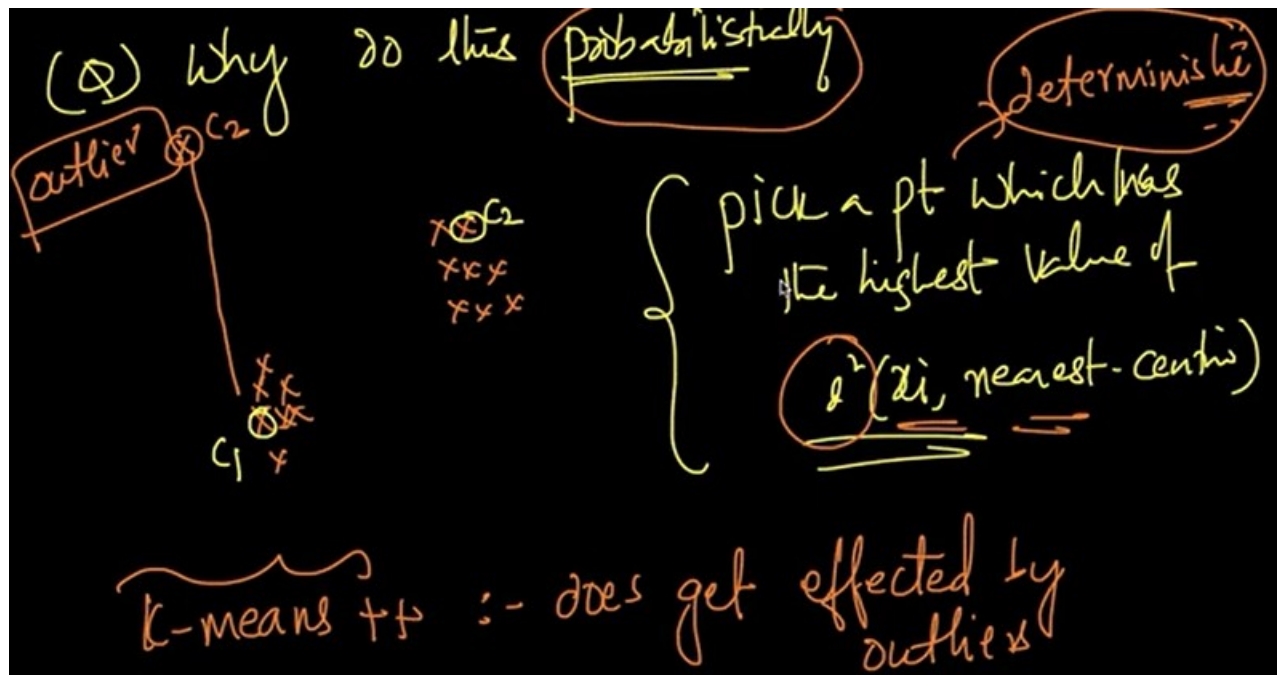 (Q) Why do this probabilistically
deterministic
outlier
C2
C2
C1
pick a pt which has
the highest value of
d²(xi, nearest-centroi)
K-means ++ :- does get effected by
outliers